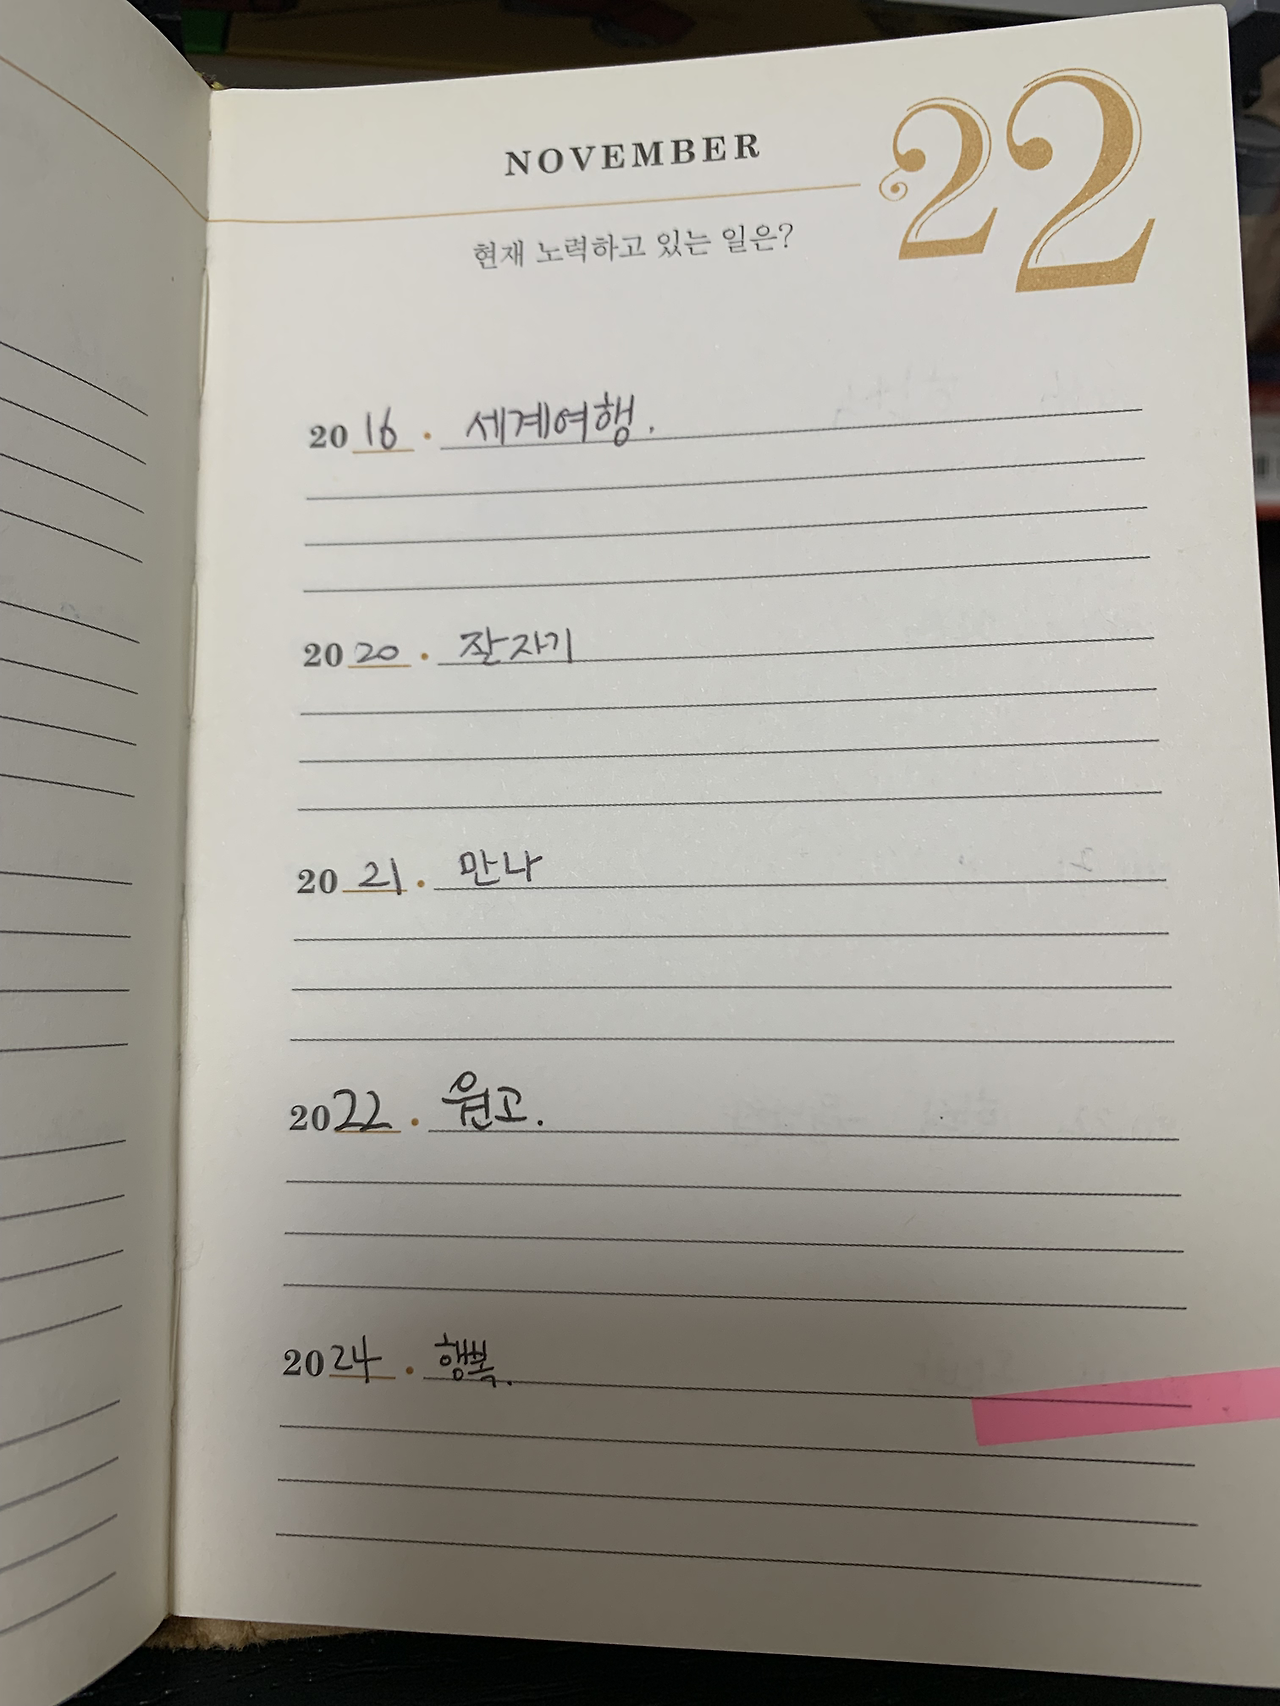 NOVEMBER 22
현재 노력하고 있는 일은?
2016 · 세계여행.
2020 · 잘자기
2021 · 만나
2022 · 원고.
2024 · 행복.